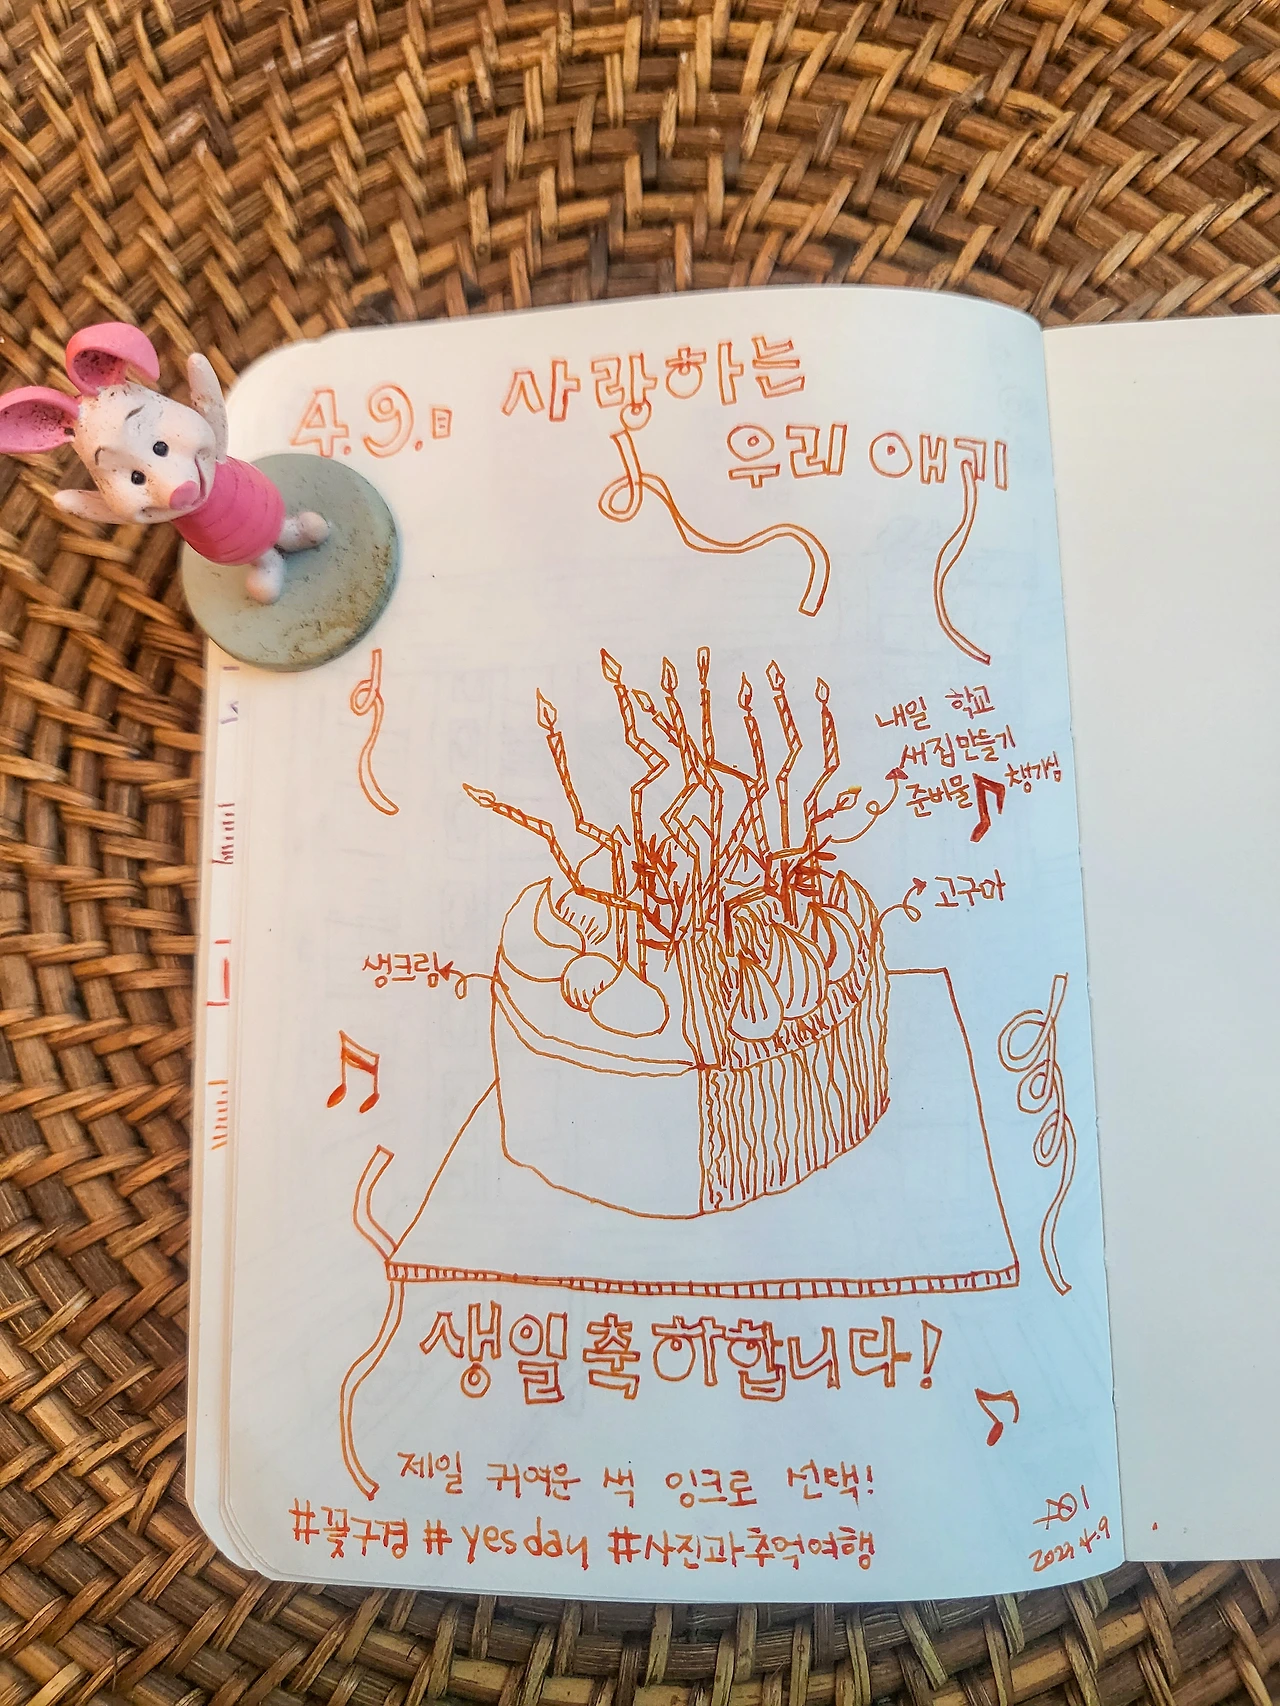 4.9.日 사랑하는
우리 애기
내일 학교
새집만들기
준비물 챙기심
고구마
생크림
생일축하합니다!
제일 귀여운 색 잉크로 선택!
#꽃구경 #yesday #사진과추억여행
4.9